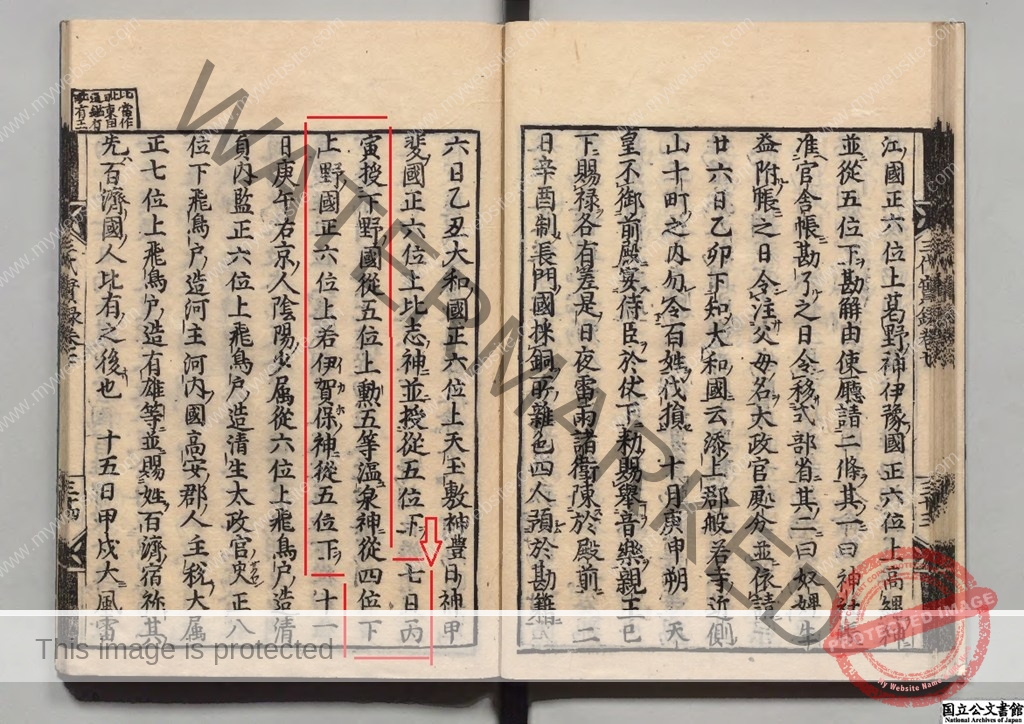 江國正六位上葛野神伊豫國正六位上高繩神
並從五位下勘解由使廳請二條其一曰神社
准官舍帳勘了之日令移式部省其二曰奴婢生
益附帳之日令注父母名大政官處分並依請
廿六日乙卯下知大和國云添上郡般若寺近側
山十町之內勿令百姓伐損 十月庚申朔天
皇不御前殿宴侍臣於伏下勑賜擧音樂親王已
下賜祿各有差是日夜雷雨諸衛陳於殿前 二
日辛酉制長門國採銅所雜色四人預於勘籍
六日乙丑大和國正六位上天玉敷神豐日神甲
斐國正六位上比志神並授從五位下 七日丙
寅授下野國從五位上勳五等溫泉神從四位下
上野國正六位上若伊賀保神從五位下 十一
日庚午右京人陰陽少属從六位上飛鳥戶造清
貞內監正六位上飛鳥戶造清生太政官史正八
位下飛鳥戶造河主河內國高安郡人主稅大属
正七位上飛鳥戶造有雄等並賜姓百濟宿祢其
先百濟國人比有之後也 十五日甲戌大風雷
三代實錄卷七
三十三
三代實錄卷七
三十四
WATERMARKED
This image is protected
PROTECTED IMAGE
My Website Name
www.mywebsite.com
国立公文書館
National Archives of Japan